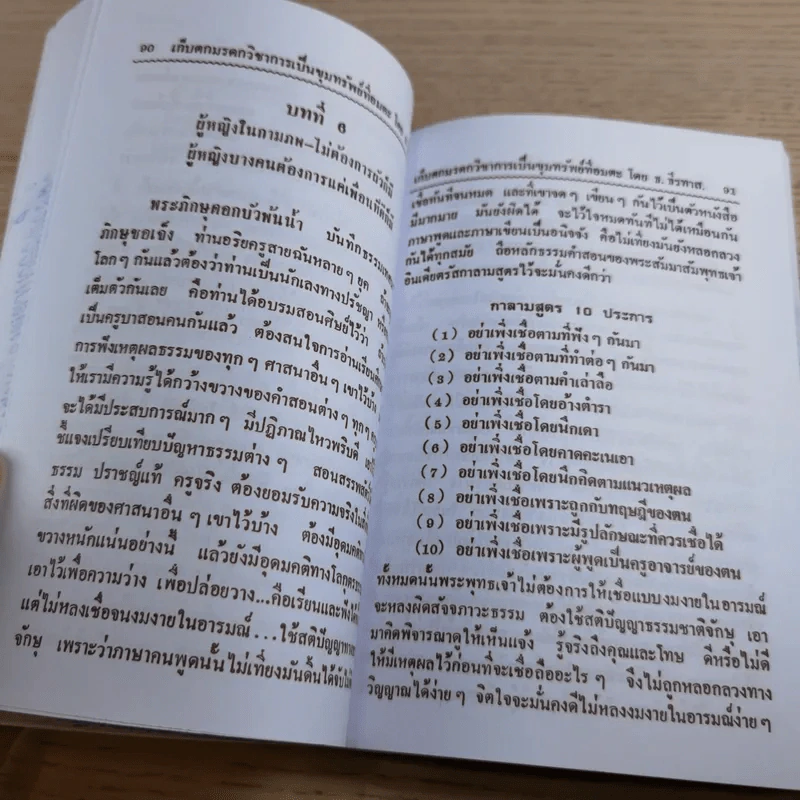 ๑๐ เก็บตกมรดกวิชาการเป็นขุมทรัพย์ที่อมตะ โดย
บทที่ 6
ผู้หญิงในกามภพ-ไม่ต้องการถัวก็มี
ผู้หญิงบางคนต้องการแค่เพื่อแท้ก็มี
พระภิกษุดอกบัวพ้นน้ำ บันทึกธรรม
ภิกษุขอเจ็ง ท่านอริยครูสายฉันหลายๆ ยุค
โลกๆ กันแล้วต้องว่าท่านเป็นนักเลงทางปรัชญา
เต็มตัวกันเลย คือท่านได้อบรมสอนศิษย์ไว้ว่า
เป็นครูบาสอนคนกันแล้ว ต้องสนใจการอ่านเรียน
การฟังเหตุผลธรรมของทุกๆ ศาสนาอื่นๆ เขาไว้บ้าง
ให้เรามีความรู้ได้กว้างขวางของคำสอนต่างๆ ทุกๆ
จะได้มีประสบการณ์มากๆ มีปฏิภาณไหวพริบดี
ชี้แจงเปรียบเทียบปัญหาธรรมต่างๆ สอนสรรพสัตว์
ธรรม ปราชญ์แท้ ครูจริง ต้องยอมรับความจริงใน
สิ่งที่ผิดของศาสนาอื่นๆ เขาไว้บ้าง ต้องมีอุดมคติ
ขวางหนักแน่นอย่างนี้ แล้วยังมีอุดมคติทางโลกุตร
เอาไว้เพื่อความว่าง เพื่อปล่อยวาง...คือเรียนและฟังได้
แต่ไม่หลงเชื่อจนงมงายในอารมณ์...ใช้สติปัญญา
จักษุ เพราะว่าภาษาคนพูดนั้นไม่เที่ยงมันดิ้นได้จับ
เก็บตกมรดกวิชาการเป็นขุมทรัพย์ที่อมตะ โดย ธ. ธีรทาส. ๑๑
เชื่อทันทีจนหมด และที่เขาจดๆ เขียนๆ กันไว้เป็นตัวหนังสือ
มีมากมาย มันยังผิดได้ จะไว้ใจหมดทันทีไม่ได้เหมือนกัน
ภาษาพูดและภาษาเขียนเป็นอนิจจัง คือไม่เที่ยงมันยังหลอกลวง
กันได้ทุกสมัย ถือหลักธรรมคำสอนของพระสัมมาสัมพุทธเจ้า
อินเดียตรัสกาลามสูตรไว้จะมั่นคงดีกว่า
กาลามสูตร 10 ประการ
(1) อย่าเพิ่งเชื่อตามที่ฟังๆ กันมา
(2) อย่าเพิ่งเชื่อตามที่ทำต่อๆ กันมา
(3) อย่าเพิ่งเชื่อตามคำเล่าลือ
(4) อย่าเพิ่งเชื่อโดยอ้างตำรา
(5) อย่าเพิ่งเชื่อโดยนึกเดา
(6) อย่าเพิ่งเชื่อโดยคาดคะเนเอา
(7) อย่าเพิ่งเชื่อโดยนึกคิดตามแนวเหตุผล
(8) อย่าเพิ่งเชื่อเพราะถูกกับทฤษฎีของตน
(9) อย่าเพิ่งเชื่อเพราะมีรูปลักษณะที่ควรเชื่อได้
(10) อย่าเพิ่งเชื่อเพราะผู้พูดเป็นครูอาจารย์ของตน
ทั้งหมดนั้นพระพุทธเจ้าไม่ต้องการให้เชื่อแบบงมงายในอารมณ์
จะหลงผิดสัจจภาวะธรรม ต้องใช้สติปัญญาธรรมชาติจักษุ เอา
มาคิดพิจารณาดูให้เห็นแจ้ง รู้จริงถึงคุณและโทษ ดีหรือไม่ดี
ให้มีเหตุผลไว้ก่อนที่จะเชื่อถืออะไรๆ จึงไม่ถูกหลอกลวงทาง
วิญญาณได้ง่ายๆ จิตใจจะมั่นคงดีไม่หลงงมงายในอารมณ์ง่ายๆ